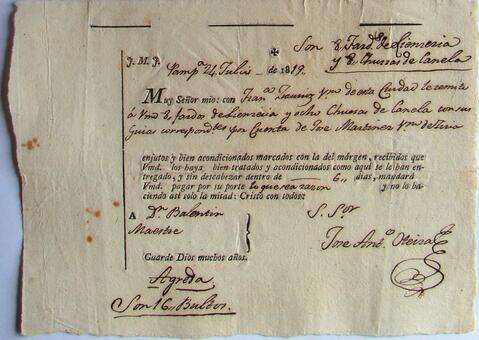 Son 8 Fard.s de Lienceria
y 8 Churas de Canela
J. M. J.
Pamp.a 24 Julio de 1819.
Muy Señor mio: con Fran.co vno de esta Ciudad le remito
á Vmd 8 fardos de Lienceria y ocho Churas de Canela con sus
Guias correspond.tes por Cuenta de Jose Martinez vno de
enjutos y bien acondicionados marcados con la del márgen, recibidos que
Vmd. los haya bien tratados y acondicionados como aquí se lo han en-
tregado, y sin descabezar dentro de 6 dias, mandará
Vmd. pagar por su porte lo que sea razon y no lo ha-
ciendo así solo la mitad: Cristo con todos
A D.n Balentin
Maestre
S. S.or
Jose Ant.o Oteiza
Guarde Dios muchos años.
Agreda
Son 16,, Bultos.